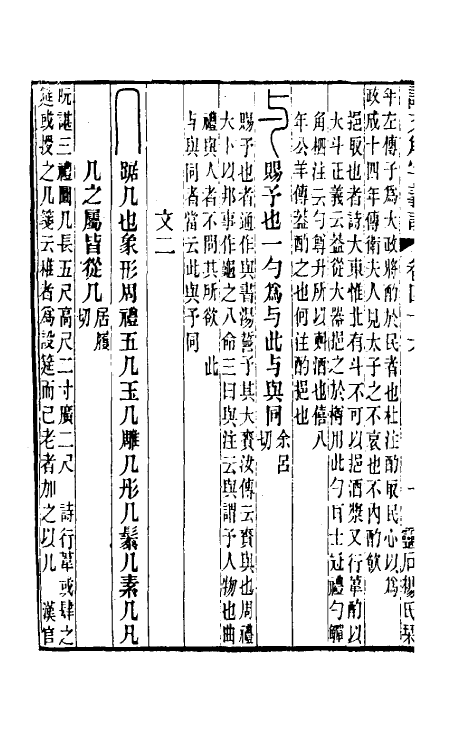 說文解字義證 卷四十六 一 靈石楊氏栞
年左傳子爲大政將酌於民者也杜注酌取民心以爲
政成十四年傳衛夫人見太子之不哀也不内酌飲
挹取也者詩大東惟北有斗不可以挹酒漿又行葦酌以
大斗正義云葢從大器挹之於樽用此勺耳士冠禮勺觶
角柶注云勺尊升所以㪺酒也僖八
年公羊傳葢酌之也何注酌挹也
与 賜予也一勺爲与此与與同 余呂切
賜予也者通作與書湯誓予其大賚汝傳云賚與也周禮
大卜以邦事作龜之八命三曰與注云與謂予人物也曲
禮與人者不問其所欲 此
与與同者當云此與予同
文二
几 踞几也象形周禮五几玉几雕几彤几鬃几素几凡
几之屬皆從几 居履切
阮諶三禮圖几長五尺高尺二寸廣二尺 詩行葦或肆之
筵或授之几箋云稚者爲設筵而已老者加之以几 漢官